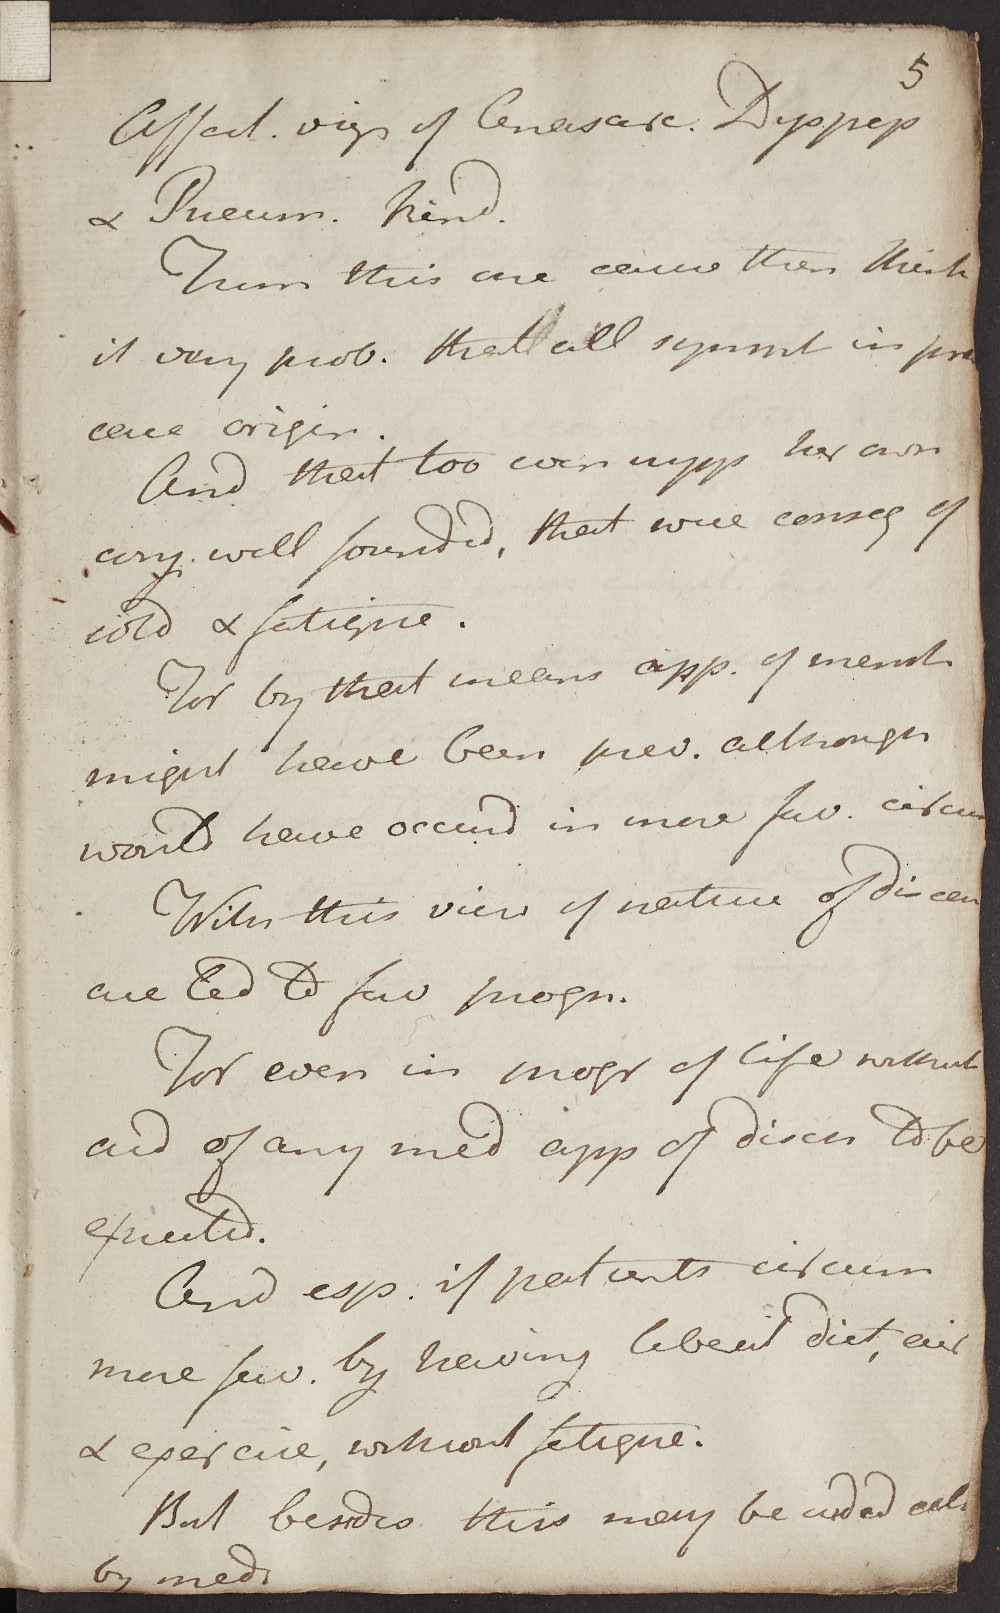 5
Affect. vizt of Anasarc. Dyspep
& Pneum. kind.
From this one cause then think
it very prob. that all sympt in pre
case origin.
And that too even supp her own
acc. well founded, that were conseq of
cold & fatigue.
For by that means app. of menst
might have been prev. although
would have occurd in more fav. circum
With this view of nature of disease
are led to fav progn.
For even in progr of life without
aid of any med app of disch to be
expected.
And esp. if patients circum
more fav. by having liberal diet, air
& exercise, without fatigue.
But besides this may be aided also
by med